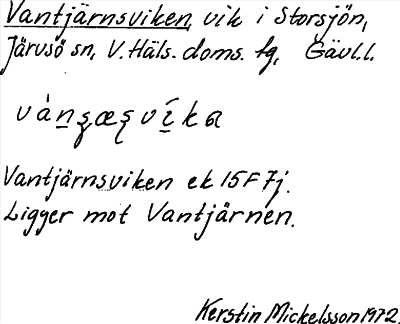 Vantjärnsviken, vik i Storsjön,
Järvsö sn, V. Häls. doms. fg, Gävl.l.
Vantjärnsviken ek 15F7j.
Ligger mot Vantjärnen.
Kerstin Mickelsson 1972.